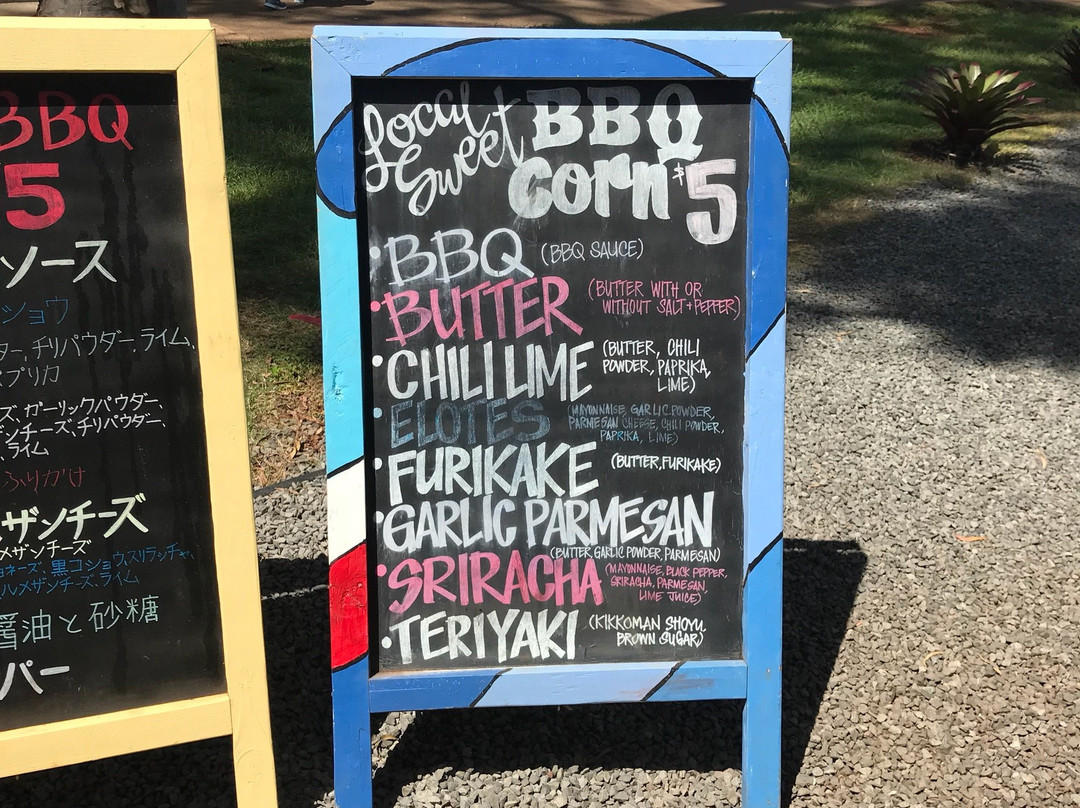 BBQ
5
ソース
ショウ
ター, チリパウダー, ライム,
パプリカ
ズ, ガーリックパウダー,
ンチーズ, チリパウダー,
, ライム
ふりかけ
ザンチーズ
メザンチーズ
ヨネーズ, 黒コショウ, スリラッチャ,
ルメザンチーズ, ライム
醤油と砂糖
パー
Local Sweet BBQ
Corn $5
• BBQ (BBQ SAUCE)
• BUTTER (BUTTER WITH OR
WITHOUT SALT + PEPPER)
• CHILI LIME (BUTTER, CHILI
POWDER, PAPRIKA,
LIME)
• ELOTES (MAYONNAISE, GARLIC POWDER,
PARMESAN CHEESE, CHILI POWDER,
PAPRIKA, LIME)
• FURIKAKE (BUTTER, FURIKAKE)
• GARLIC PARMESAN
(BUTTER, GARLIC POWDER, PARMESAN)
• SRIRACHA (MAYONNAISE, BLACK PEPPER,
SRIRACHA, PARMESAN,
LIME JUICE)
• TERIYAKI (KIKKOMAN SHOYU,
BROWN SUGAR)